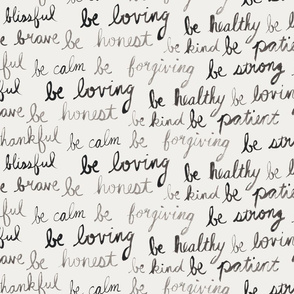 blissful be loving be healthy be
be brave be honest be kind be patient
ful be calm be forgiving be strong
ful be loving be healthy be loving
ave be honest be kind be patient
thankful be calm be forgiving be
blissful be loving be healthy be
be brave be honest be kind be patie
ful be calm be forgiving be strong
ful be loving be healthy be loving
ave be honest be kind be patient
thankful be calm be forgiving be